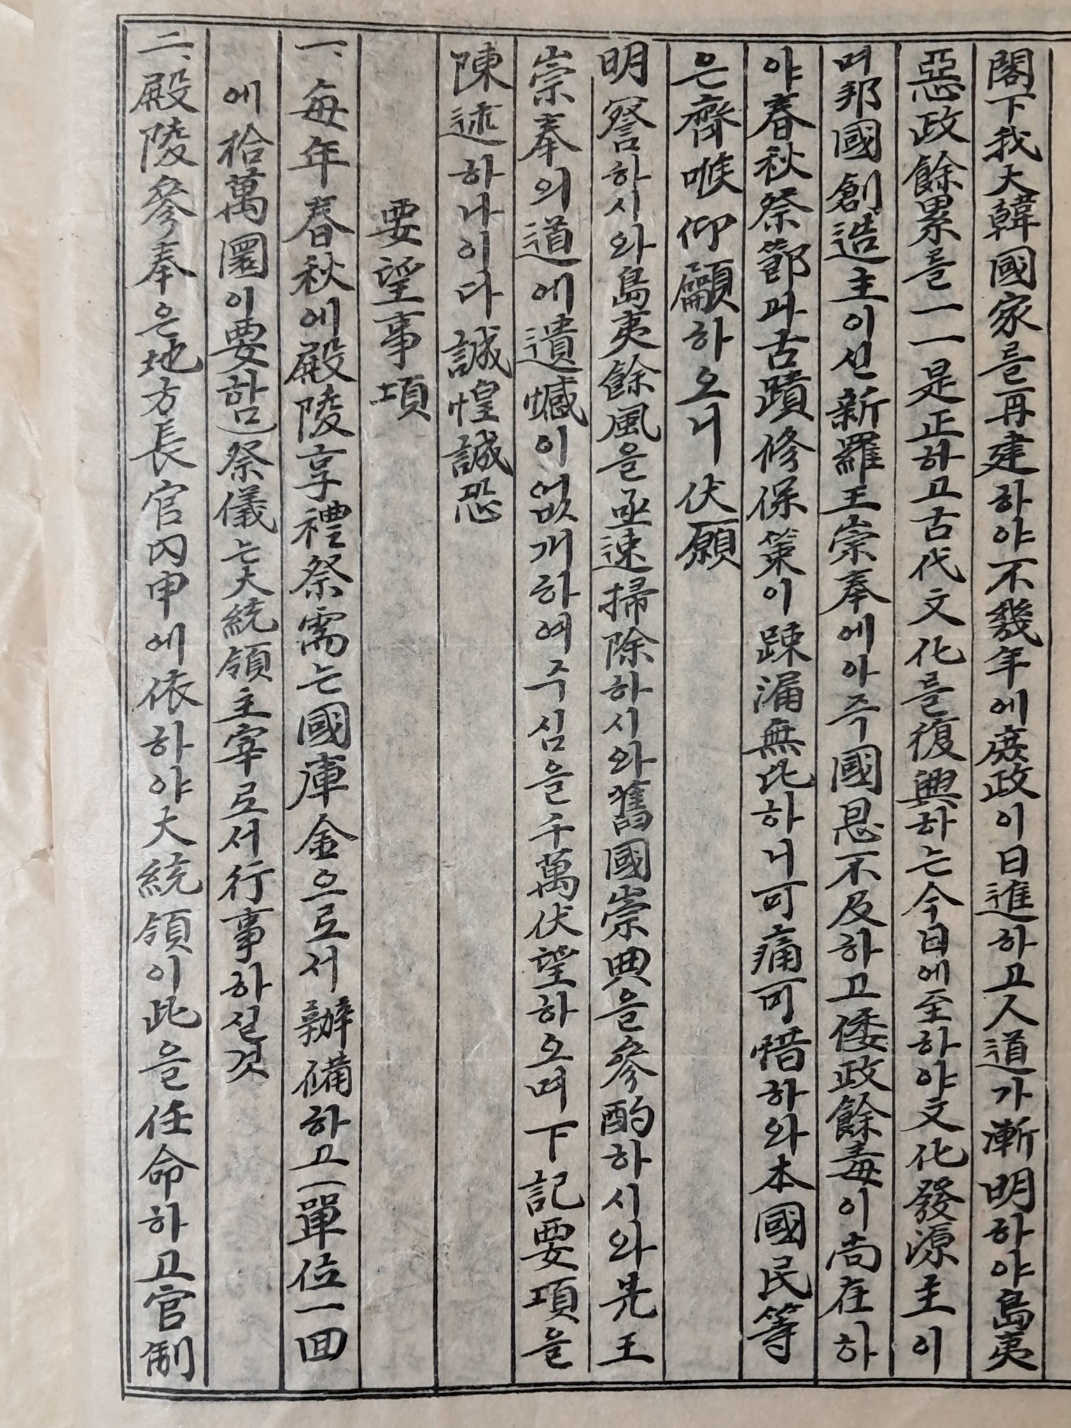 閣下我大韓國家를再建하야不幾年에庶政이日進하고人道가漸明하야島夷
惡政餘累를一一是正하고古代文化를復興하는今日에至하야文化發源主이
며邦國創造主이신新羅王崇奉에아주國恩不及하고倭政餘毒이尙在하
야春秋祭節과古蹟修保策이疎漏無比하니可痛可惜하와本國民等
은齊喉仰龥하오니伏願
明詧하시와島夷餘風을亟速掃除하시와舊國崇典을參酌하시와先王
崇奉의道에遺憾이없개하여주심을千萬伏望하오며下記要項을
陳述하나이다誠惶誠恐
要望事項
一、每年春秋에殿陵享禮祭需는國庫金으로서辦備하고(單位一回
에拾萬圜이要함)祭儀는大統領主宰로서行事하실것
二、殿陵參奉은地方長官內申에依하야大統領이此을任命하고官制